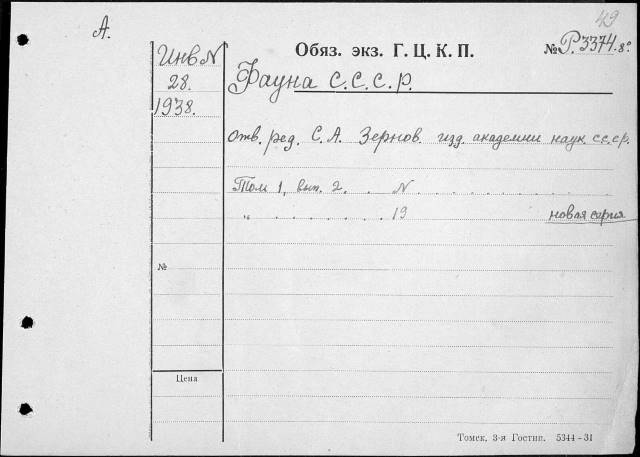 49
А.
Инв N
28.
1938.
№
Цена
Обяз. экз. Г. Ц. К. П. № Р. 3374. 8°
Фауна С.С.С.Р.
отв. ред. С. А. Зернов. изд. академии наук СС.СР.
Том 1, вып. 2. . N . . . . . . . . . . . .
" . . . . . . . 19 новая серия
Томск, 3-я Гостип. 5344-31